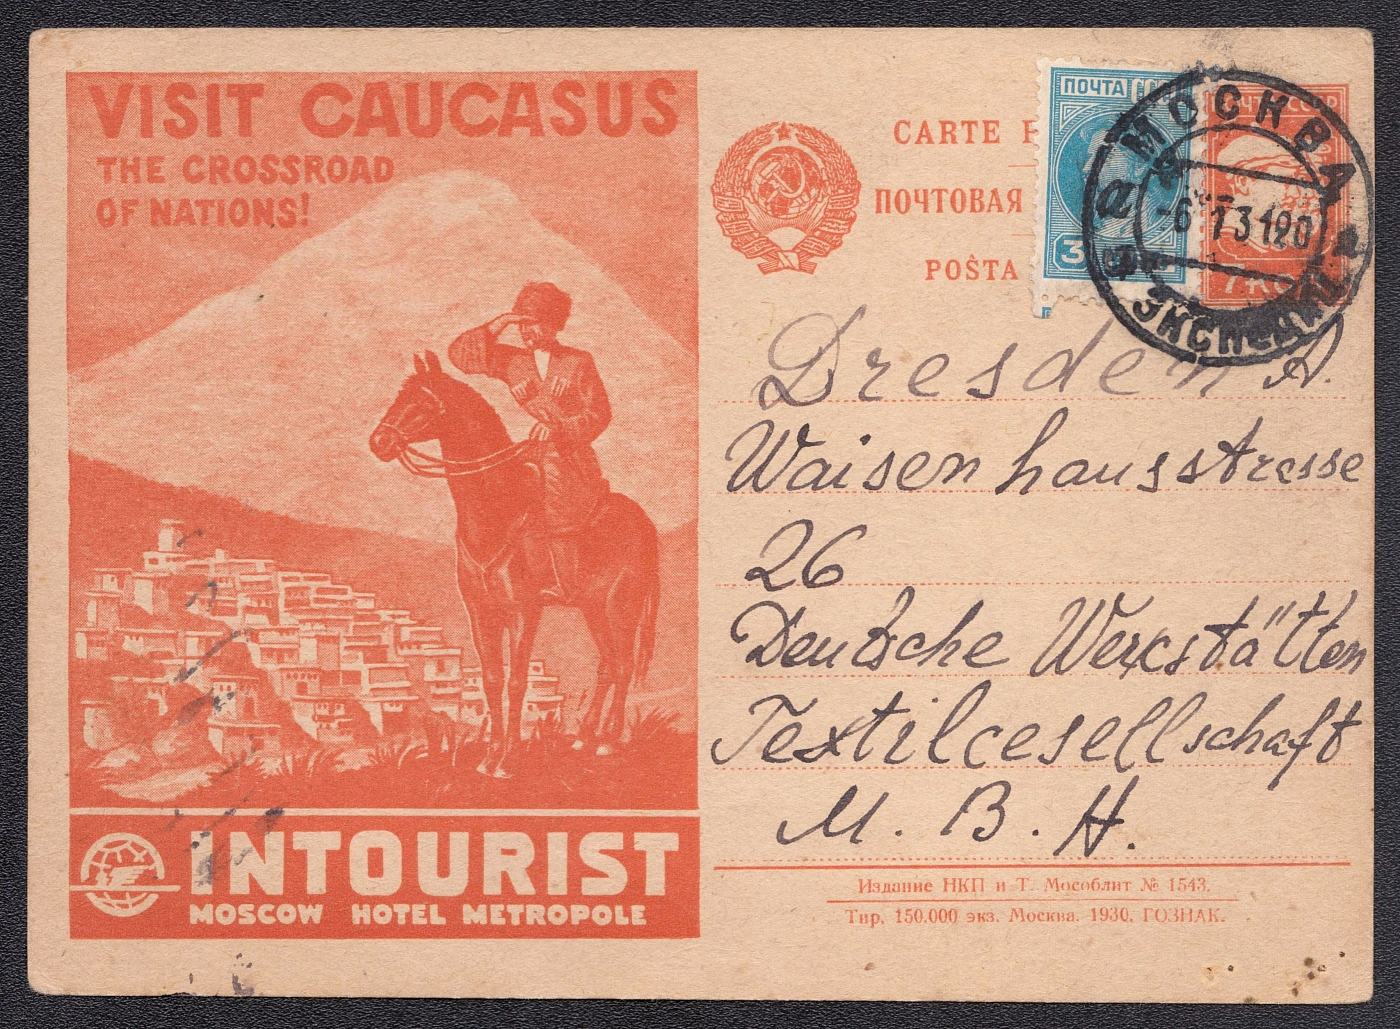 VISIT CAUCASUS
THE CROSSROAD
OF NATIONS!
INTOURIST
MOSCOW HOTEL METROPOLE
CARTE
ПОЧТОВАЯ
POŜTA
ПОЧТА
3
ПОЧТА СССР
7 КОП
МОСКВА
-6.1 31 20
ЭКСПЕДИЦ
Dresden A.
Waisenhausstresse
26
Deutsche Werkstätten
Textilcesellschaft
M. B. H.
Издание НКП и Т. Мособлит № 1543.
Тир. 150.000 экз. Москва. 1930. ГОЗНАК.